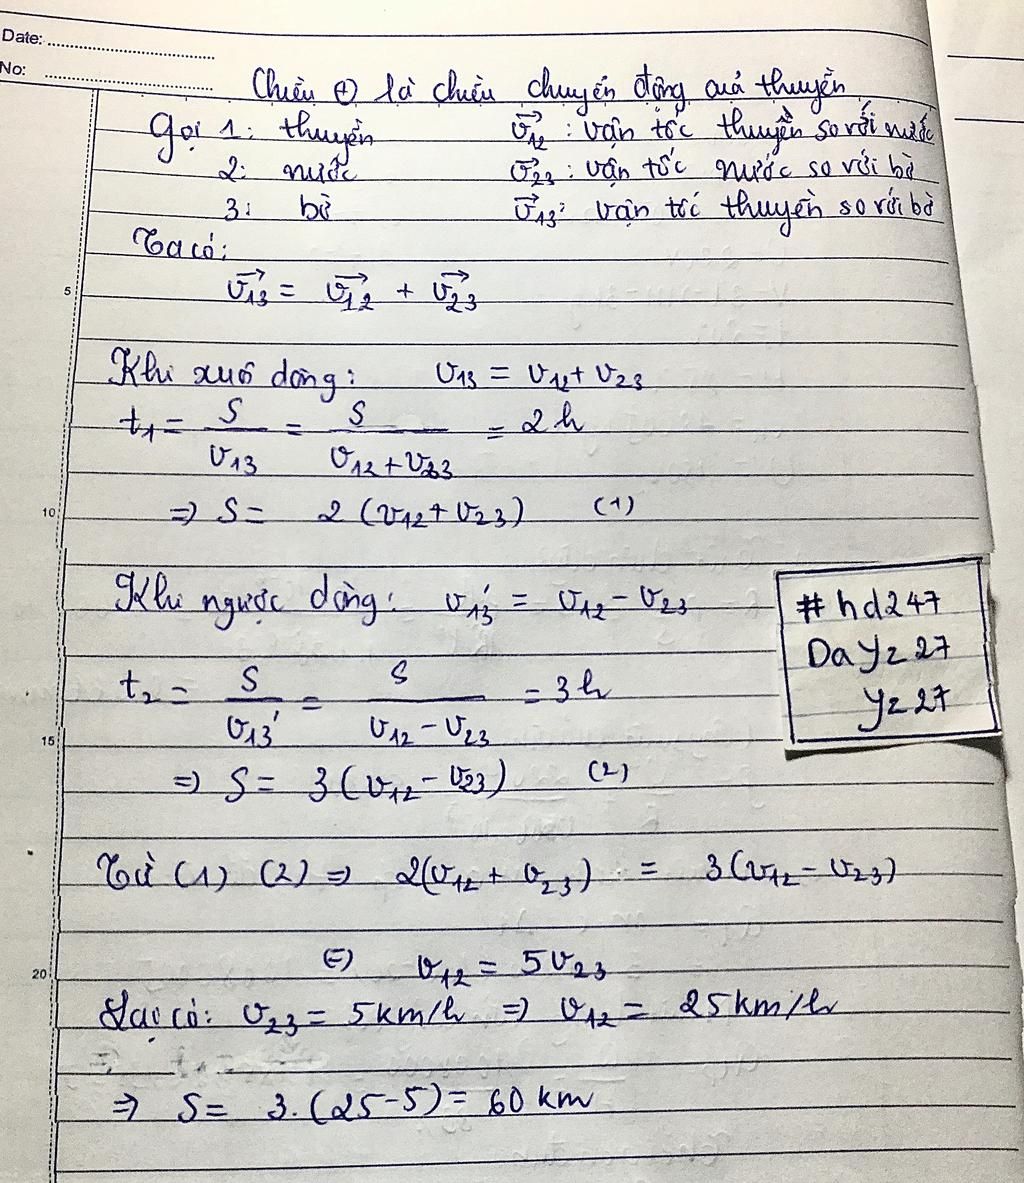 Date:
No:
Chiều (+) là chiều chuyển động quả thuyền
Gọi 1: thuyền
v₁₂: vận tốc thuyền so với nước
2: nước
v₂₃: vận tốc nước so với bờ
3: bờ
v₁₃: vận tốc thuyền so với bờ
Ta có:
5
v₁₃ = v₁₂ + v₂₃
Khi xuôi dòng: v₁₃ = v₁₂ + v₂₃
t₁ = S/v₁₃ = S/(v₁₂ + v₂₃) = 2h
10
=> S = 2(v₁₂ + v₂₃) (1)
Khi ngược dòng: v₁₃' = v₁₂ - v₂₃
#hd247
DaYz27
Yz27
t₂ = S/v₁₃' = S/(v₁₂ - v₂₃) = 3h
15
=> S = 3(v₁₂ - v₂₃) (2)
Từ (1) (2) => 2(v₁₂ + v₂₃) = 3(v₁₂ - v₂₃)
20
(=) v₁₂ = 5v₂₃
Lại có: v₂₃ = 5km/h => v₁₂ = 25km/h
=> S = 3.(25-5) = 60 km